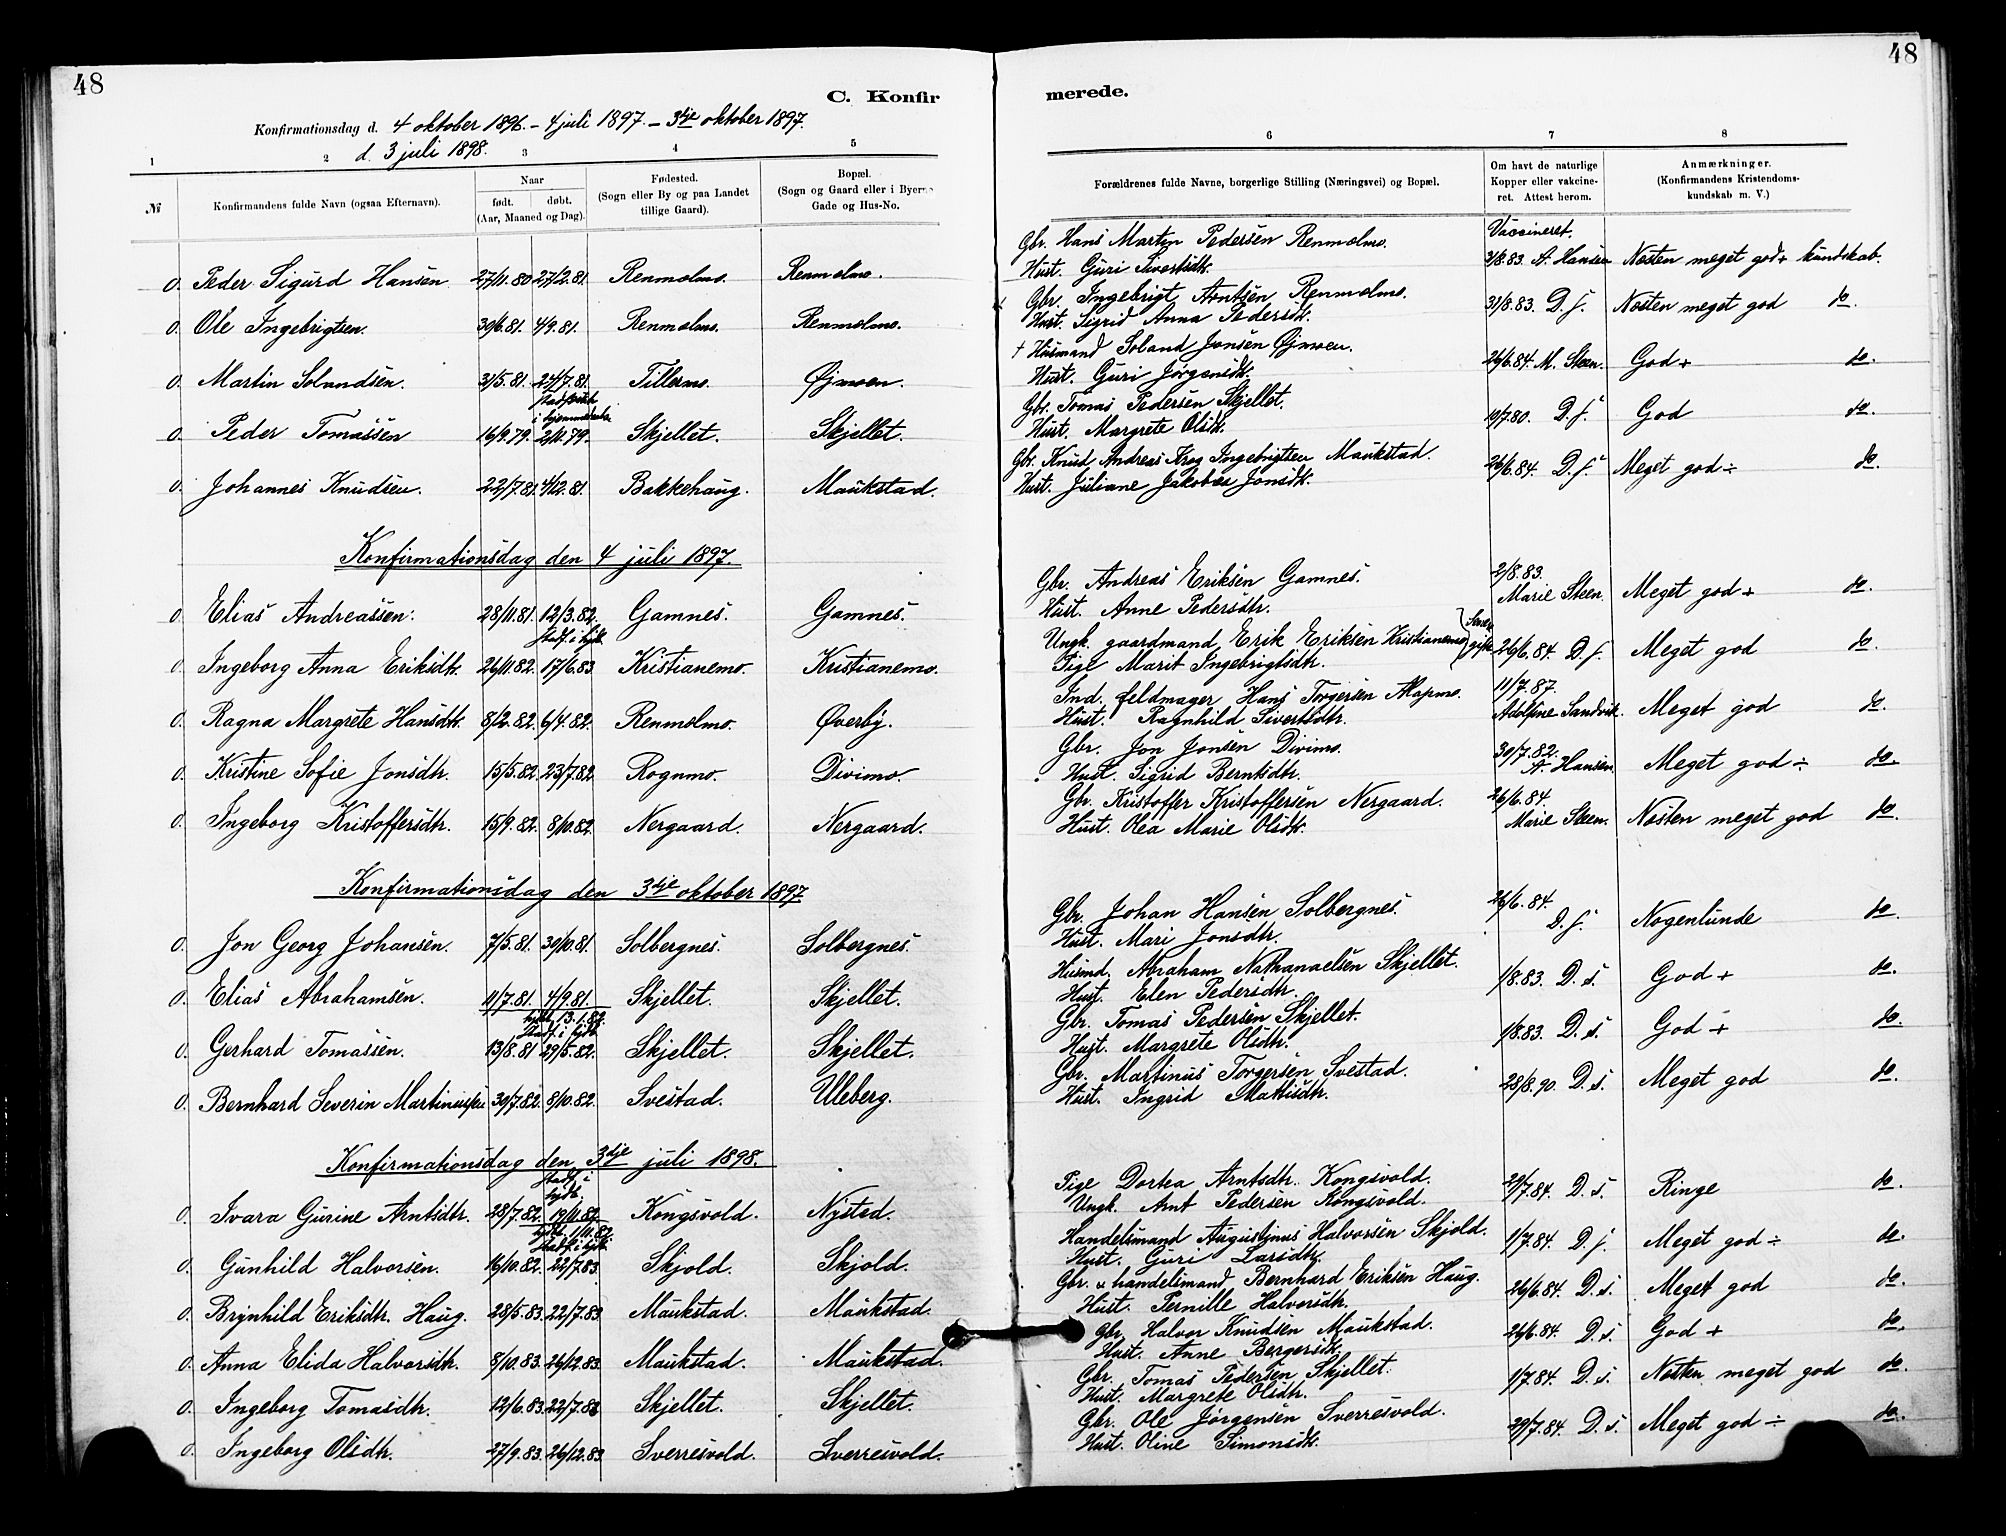 48
C. Konfir
Konfirmationsdag d. 4 oktober 1896. – 4 juli 1897. – 3dje oktober 1897.
d. 3 juli 1898.
1 2 3 4 5
№
Konfirmandens fulde Navn (ogsaa Efternavn).
Naar
født. døbt.
(Aar, Maaned og Dag).
Fødested.
(Sogn eller By og paa Landet
tillige Gaard).
Bopæl.
(Sogn og Gaard eller i Byerne
Gade og Hus-No.
0. Peder Sigurd Hansen 27/11.80 27/2.81. Renmolmo. Renmolmo.
0. Ole Ingebrigtsen. 30/6.81. 4/9.81. Renmolmo. Renmolmo.
0. Martin Solundsen. 31/5.81. 24/7.81. Tillermo. Øjmoen.
i hjemmedaab
0. Peder Tomassen 16/9.79. 2/11.79. Skjellet. Skjellet.
0. Johannes Knudsen. 22/7.81. 4/12.81. Bakkehaug. Maukstad.
Konfirmationsdag den 4 juli 1897.
0. Elias Andreassen. 28/11.81. 12/3.82. Gamnes. Gamnes.
stadf. i kjrk.
0. Ingeborg Anna Eriksdtr. 26/11.82. 17/6.83. Kristianemo. Kristianemo.
0. Ragna Margrete Hansdtr. 8/2.82. 6/4.82. Renmolmo. Øverby.
0. Kristine Sofie Jonsdtr. 15/5.82. 23/7.82. Rognmo. Divimo.
0. Ingeborg Kristoffersdtr. 15/9.82. 8/10.82. Nergaard. Nergaard.
Konfirmationsdag den 3dje oktober 1897
0. Jon Georg Johansen. 7/5.81. 30/10.81. Solbergnes. Solbergnes.
0. Elias Abrahamsen. 11/7.81. 4/9.81. Skjellet. Skjellet.
13.1.82.
stadf. i kjrk.
0. Gerhard Tomassen. 13/8.81 29/5.82. Skjellet. Skjellet.
0. Bernhard Severin Martinussen 30/7.82. 8/10.82. Svestad. Uleberg.
Konfirmationsdag den 3dje juli 1898.
stadf. i
kjrk.
0. Ivara Gurine Arntsdtr. 28/7.82. 19/11.82. Kongsvold. Nysted.
1/11.82.
stadf. i kjrk.
0. Gunhild Halvorsen. 16/10.82. 22/7.83. Skjold. Skjold.
0. Brynhild Eriksdtr. Haug. 28/5.83. 22/7.83 Maukstad. Maukstad.
0. Anna Elida Halvorsdtr. 8/10.83. 26/12.83. Maukstad. Maukstad.
0. Ingeborg Tomasdtr. 12/6.83. 22/7.83 Skjellet. Skjellet.
0. Ingeborg Olsdtr. 27/9.83. 26/12.83 Sverresvold. Sverresvold.
48
merede.
6 7 8
Forældrenes fulde Navne, borgerlige Stilling (Næringsvei) og Bopæl.
Om havt de naturlige
Kopper eller vakcine-
ret. Attest herom.
Anmærkninger.
(Konfirmandens Kristendoms-
kundskab m. V.)
Vaccineret.
Gbr. Hans Martin Pedersen Renmolmo.
Hust. Guri Sivertsdtr. 2/8.83. A. Hansen Næsten meget god + kundskab.
Gbr. Ingebrigt Arntsen Renmolmo.
Hust. Sigrid Anna Pedersdtr. 31/8.83. D. f. Næsten meget god do.
† Husmand Solund Jonsen Øjmoen.
Hust. Guri Jørgensdtr. 26/6.84. M. Steen. God + do.
Gbr. Tomas Pedersen Skjellet.
Hust. Margrete Olsdtr. 10/7.80. D. f. God do.
Gbr. Knud Andreas Krog Ingebrigtsen Maukstad.
Hust. Juliane Jakobea Jonsdtr. 26/6.84. D. f. Meget god ÷ do.
Gbr. Andreas Eriksen Gamnes. 2/8.83.
Hust. Anne Pedersdtr. Marie Steen. Meget god + do.
Ungk. gaardmand Erik Eriksen Kristianemo
Pige Marit Ingebrigtsdtr. 26/6.84. D. f. Meget god do.
Ind. feldmager Hans Torgersen Mapmo. 11/7.87.
Hust. Ragnhild Sivertsdtr. Adolfine Sandvik. Meget god do.
Gbr. Jon Jonsen Divimo. 30/7.82.
Hust. Sigrid Berntsdtr. A. Hansen. Meget god ÷ do.
Gbr. Kristoffer Kristoffersen Nergaard. 26/6.84.
Hust. Olea Marie Olsdtr. Marie Steen. Næsten meget god do.
Gbr. Johan Hansen Solbergnes. 26/6.84.
Hust. Mari Jonsdtr. D. f. Nogenlunde do.
Husmd. Abraham Nathanaelsen Skjellet.
Hust. Elen Pedersdtr. 1/8.83. D. s. God + do.
Gbr. Tomas Pedersen Skjellet.
Hust. Margrete Olsdtr. 1/8.83. D. s. God + do.
Gbr. Martinus Torgersen Svestad.
Hust. Ingrid Mattisdtr. 28/8.90. D. s. Meget god do.
Pige Dortea Arntsdtr. Kongsvold.
Ungk. Arnt Pedersen Kongsvold. 29/7.84. D. s. Ringe do.
Handelsmand Augustinus Halvorsen Skjold.
Hust. Guri Larsdtr. 1/7.84. D. f. Meget god ÷ do.
Gbr. & handelsmand Bernhard Eriksen Haug.
Hust. Pernille Halvorsdtr. 26/6.84. D. s. Meget god do.
Gbr. Halvor Knudsen Maukstad.
Hust. Anne Bergersdtr. 26/6.84. D. s. God + do.
Gbr. Tomas Pedersen Skjellet.
Hust. Margrete Olsdtr. 1/7.84. D. s. Næsten meget god do.
Gbr. Ole Jørgensen Sverresvold.
Hust. Oline Simonsdtr. 29/7.84. D. s. Meget god ÷ do.